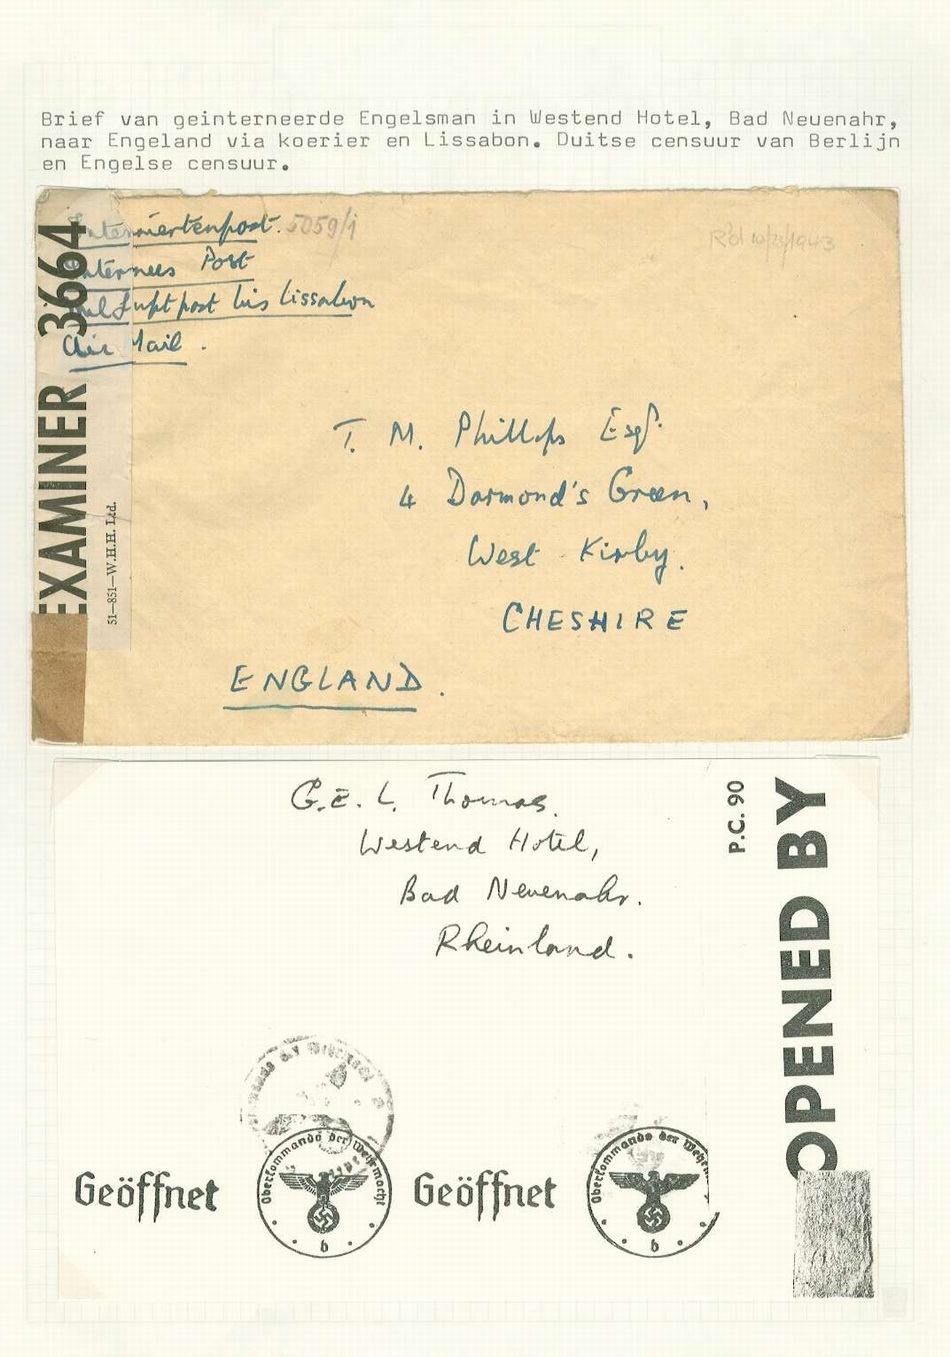 Brief van geinterneerde Engelsman in Westend Hotel, Bad Neuenahr,
naar Engeland via koerier en Lissabon. Duitse censuur van Berlijn
en Engelse censuur.
Interniertenpost. 5059/1
Internees Post
Luftpost bis Lissabon
Air Mail.
EXAMINER 3664
51—851—W.H.H. Ltd.
T. M. Phillips Esqr.
4 Darmond's Green,
West Kirby.
CHESHIRE
ENGLAND.
G.E.L. Thomas.
Westend Hotel,
Bad Neuenahr.
Rheinland.
P.C. 90
OPENED BY
Geöffnet
Oberkommando der Wehrmacht
b
Geöffnet
Oberkommando der
b